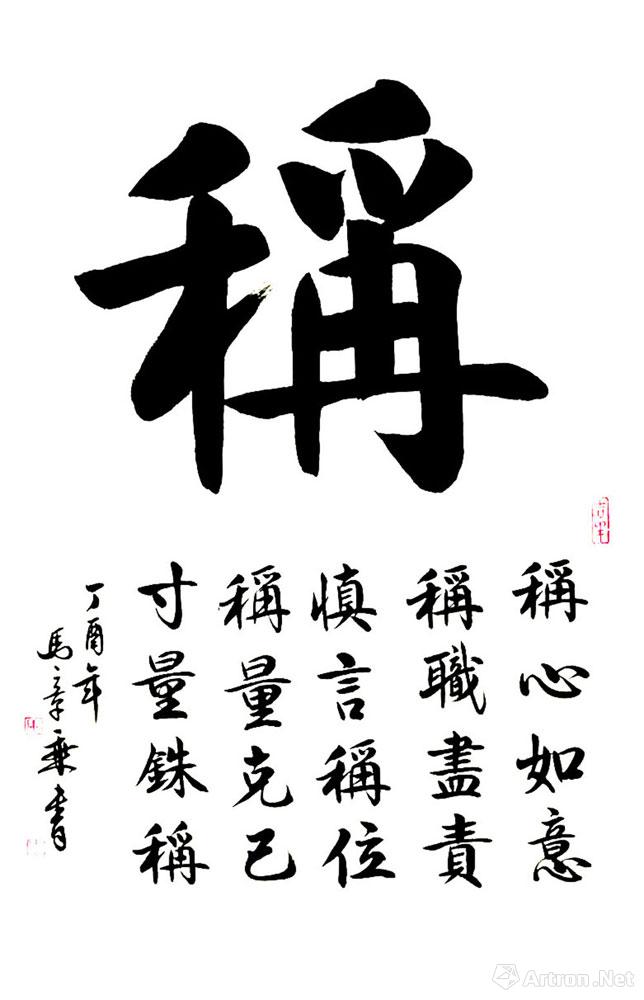 稱
稱心如意
稱職盡責
慎言稱位
稱量克己
寸量銖稱
丁酉年
馬章乘書
Artron.Net